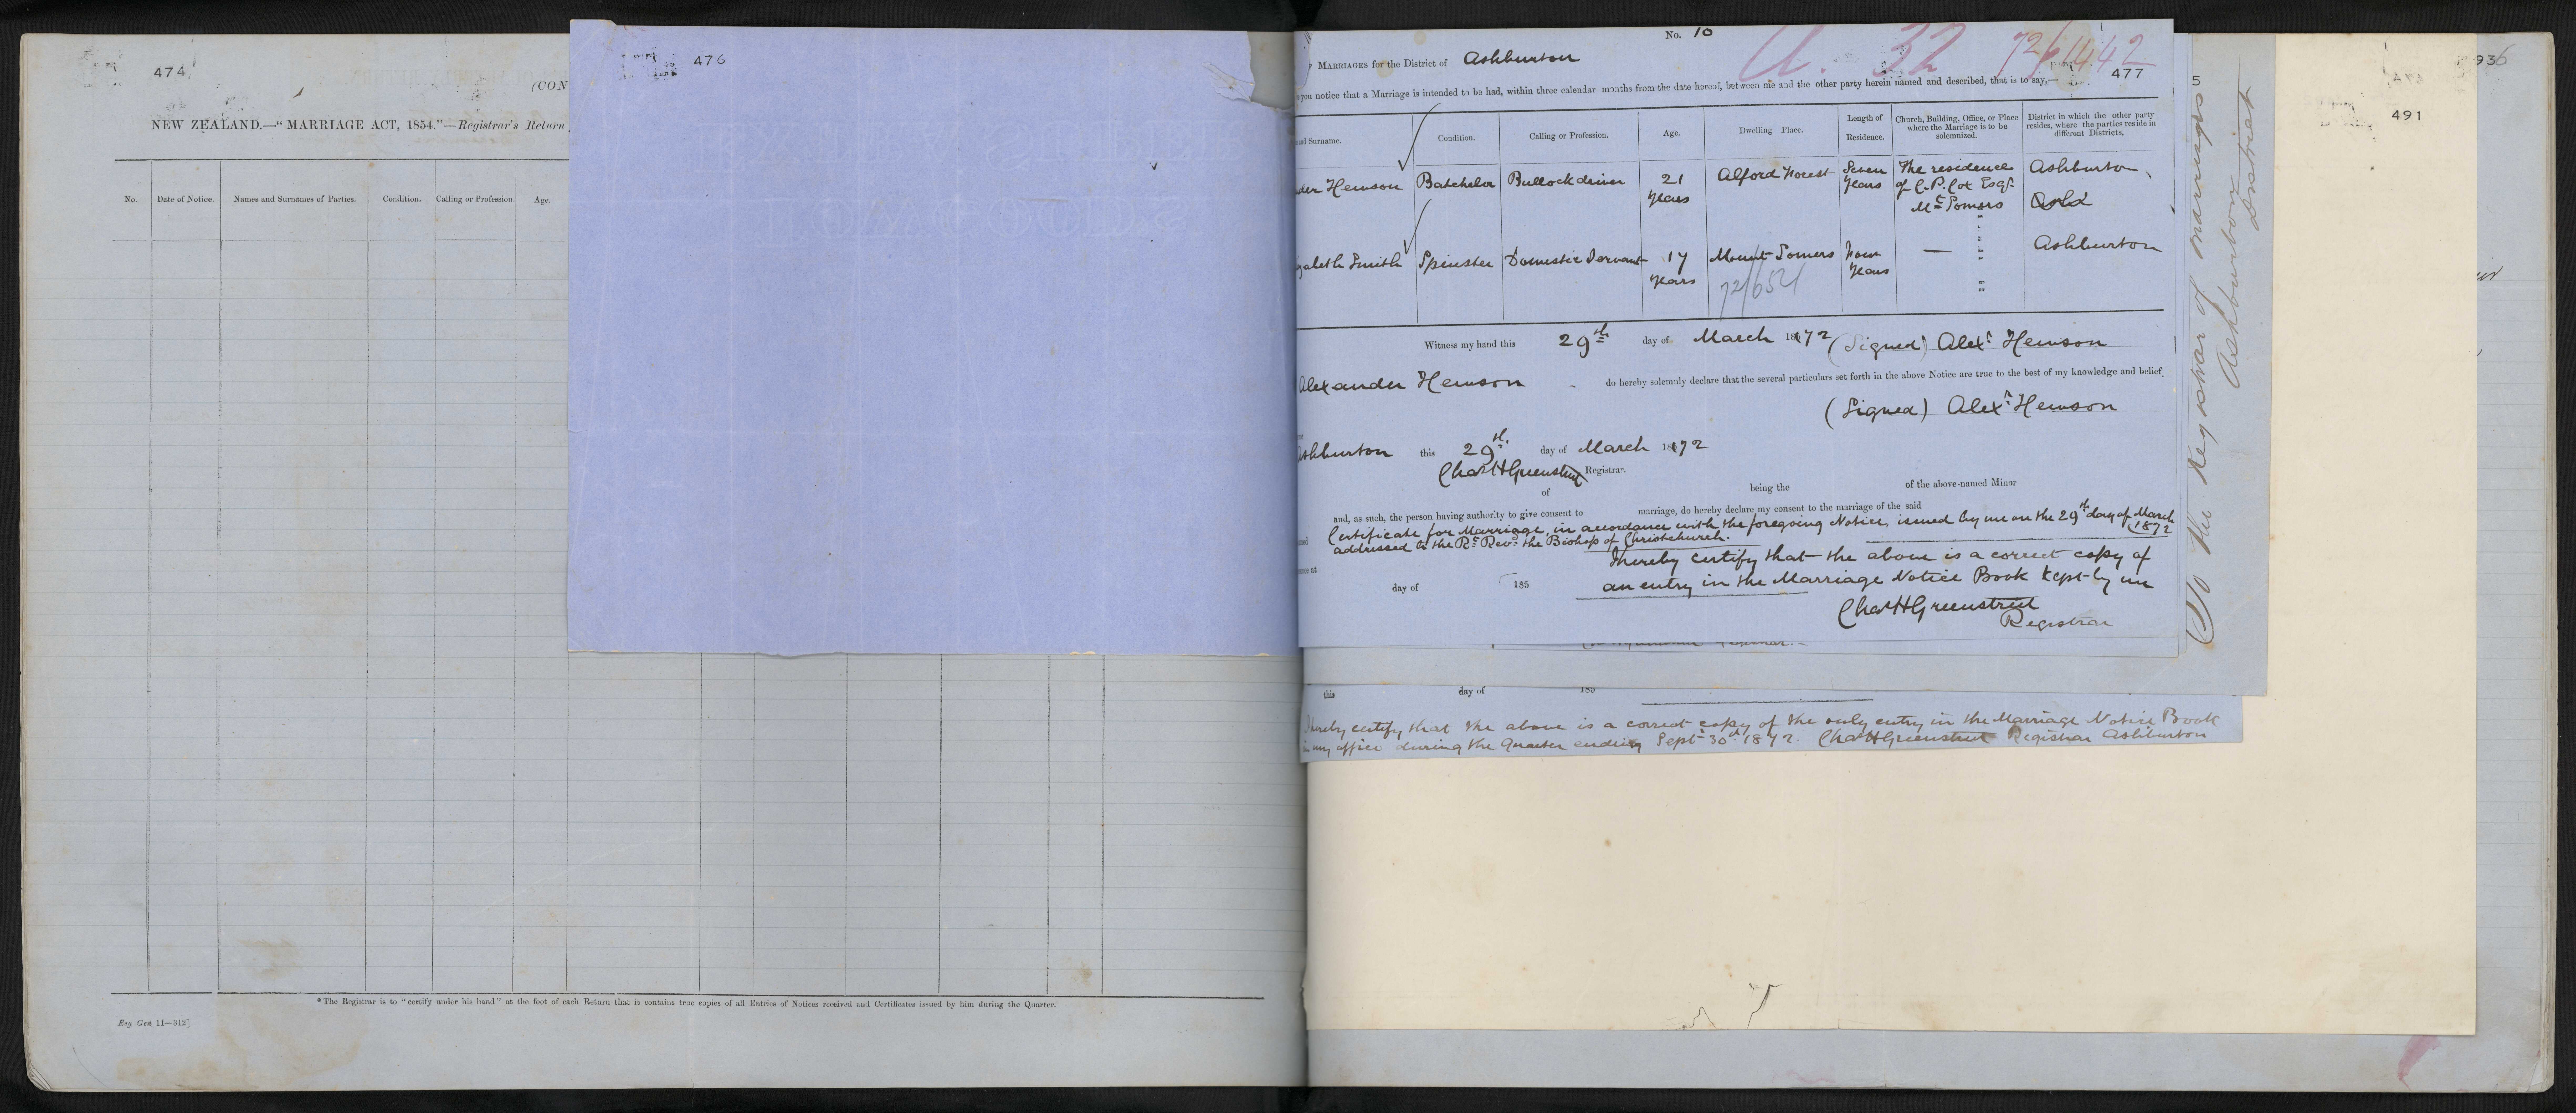 474
(CON
NEW ZEALAND.—“MARRIAGE ACT, 1854.”—Registrar's Return
No. Date of Notice. Names and Surnames of Parties. Condition. Calling or Profession. Age.
*The Registrar is to “certify under his hand” at the foot of each Return that it contains true copies of all Entries of Notices received and Certificates issued by him during the Quarter.
Reg Gen 11—312]
476
No. 10
MARRIAGES for the District of Ashburton
U. 32 72/1442
477
you notice that a Marriage is intended to be had, within three calendar months from the date hereof, between me and the other party herein named and described, that is to say,—
and Surname. Condition. Calling or Profession. Age. Dwelling Place. Length of Residence. Church, Building, Office, or Place where the Marriage is to be solemnized. District in which the other party resides, where the parties reside in different Districts,
der Hewson Batchelor Bullock driver 21 years Alford Forest Seven Years The residence of C. P. Cox Esqr. Mt Somers Ashburton
zabeth Smith Spinster Domestic Servant 17 years Mount Somers Four Years — Ashburton
72/652
Witness my hand this 29th day of March 1872 (Signed) Alexr Hewson
Alexander Hewson do hereby solemnly declare that the several particulars set forth in the above Notice are true to the best of my knowledge and belief.
(Signed) Alexr Hewson
Ashburton this 29th day of March 1872
Chas H Greenstreet Registrar.
of being the of the above-named Minor
and, as such, the person having authority to give consent to marriage, do hereby declare my consent to the marriage of the said
Certificate for Marriage, in accordance with the foregoing Notice, issued by me on the 29th day of March 1872
addressed to the Rt Revd the Bishop of Christchurch.
I hereby certify that the above is a correct copy of
day of 185 an entry in the Marriage Notice Book kept by me
Chas H Greenstreet
Registrar
this day of 185
I hereby certify that the above is a correct copy of the only entry in the Marriage Notice Book
in my office during the Quarter ending Sept 30th 1872. Chas H Greenstreet Registrar Ashburton
5
To the Registrar of marriages
Ashburton
District
936
491